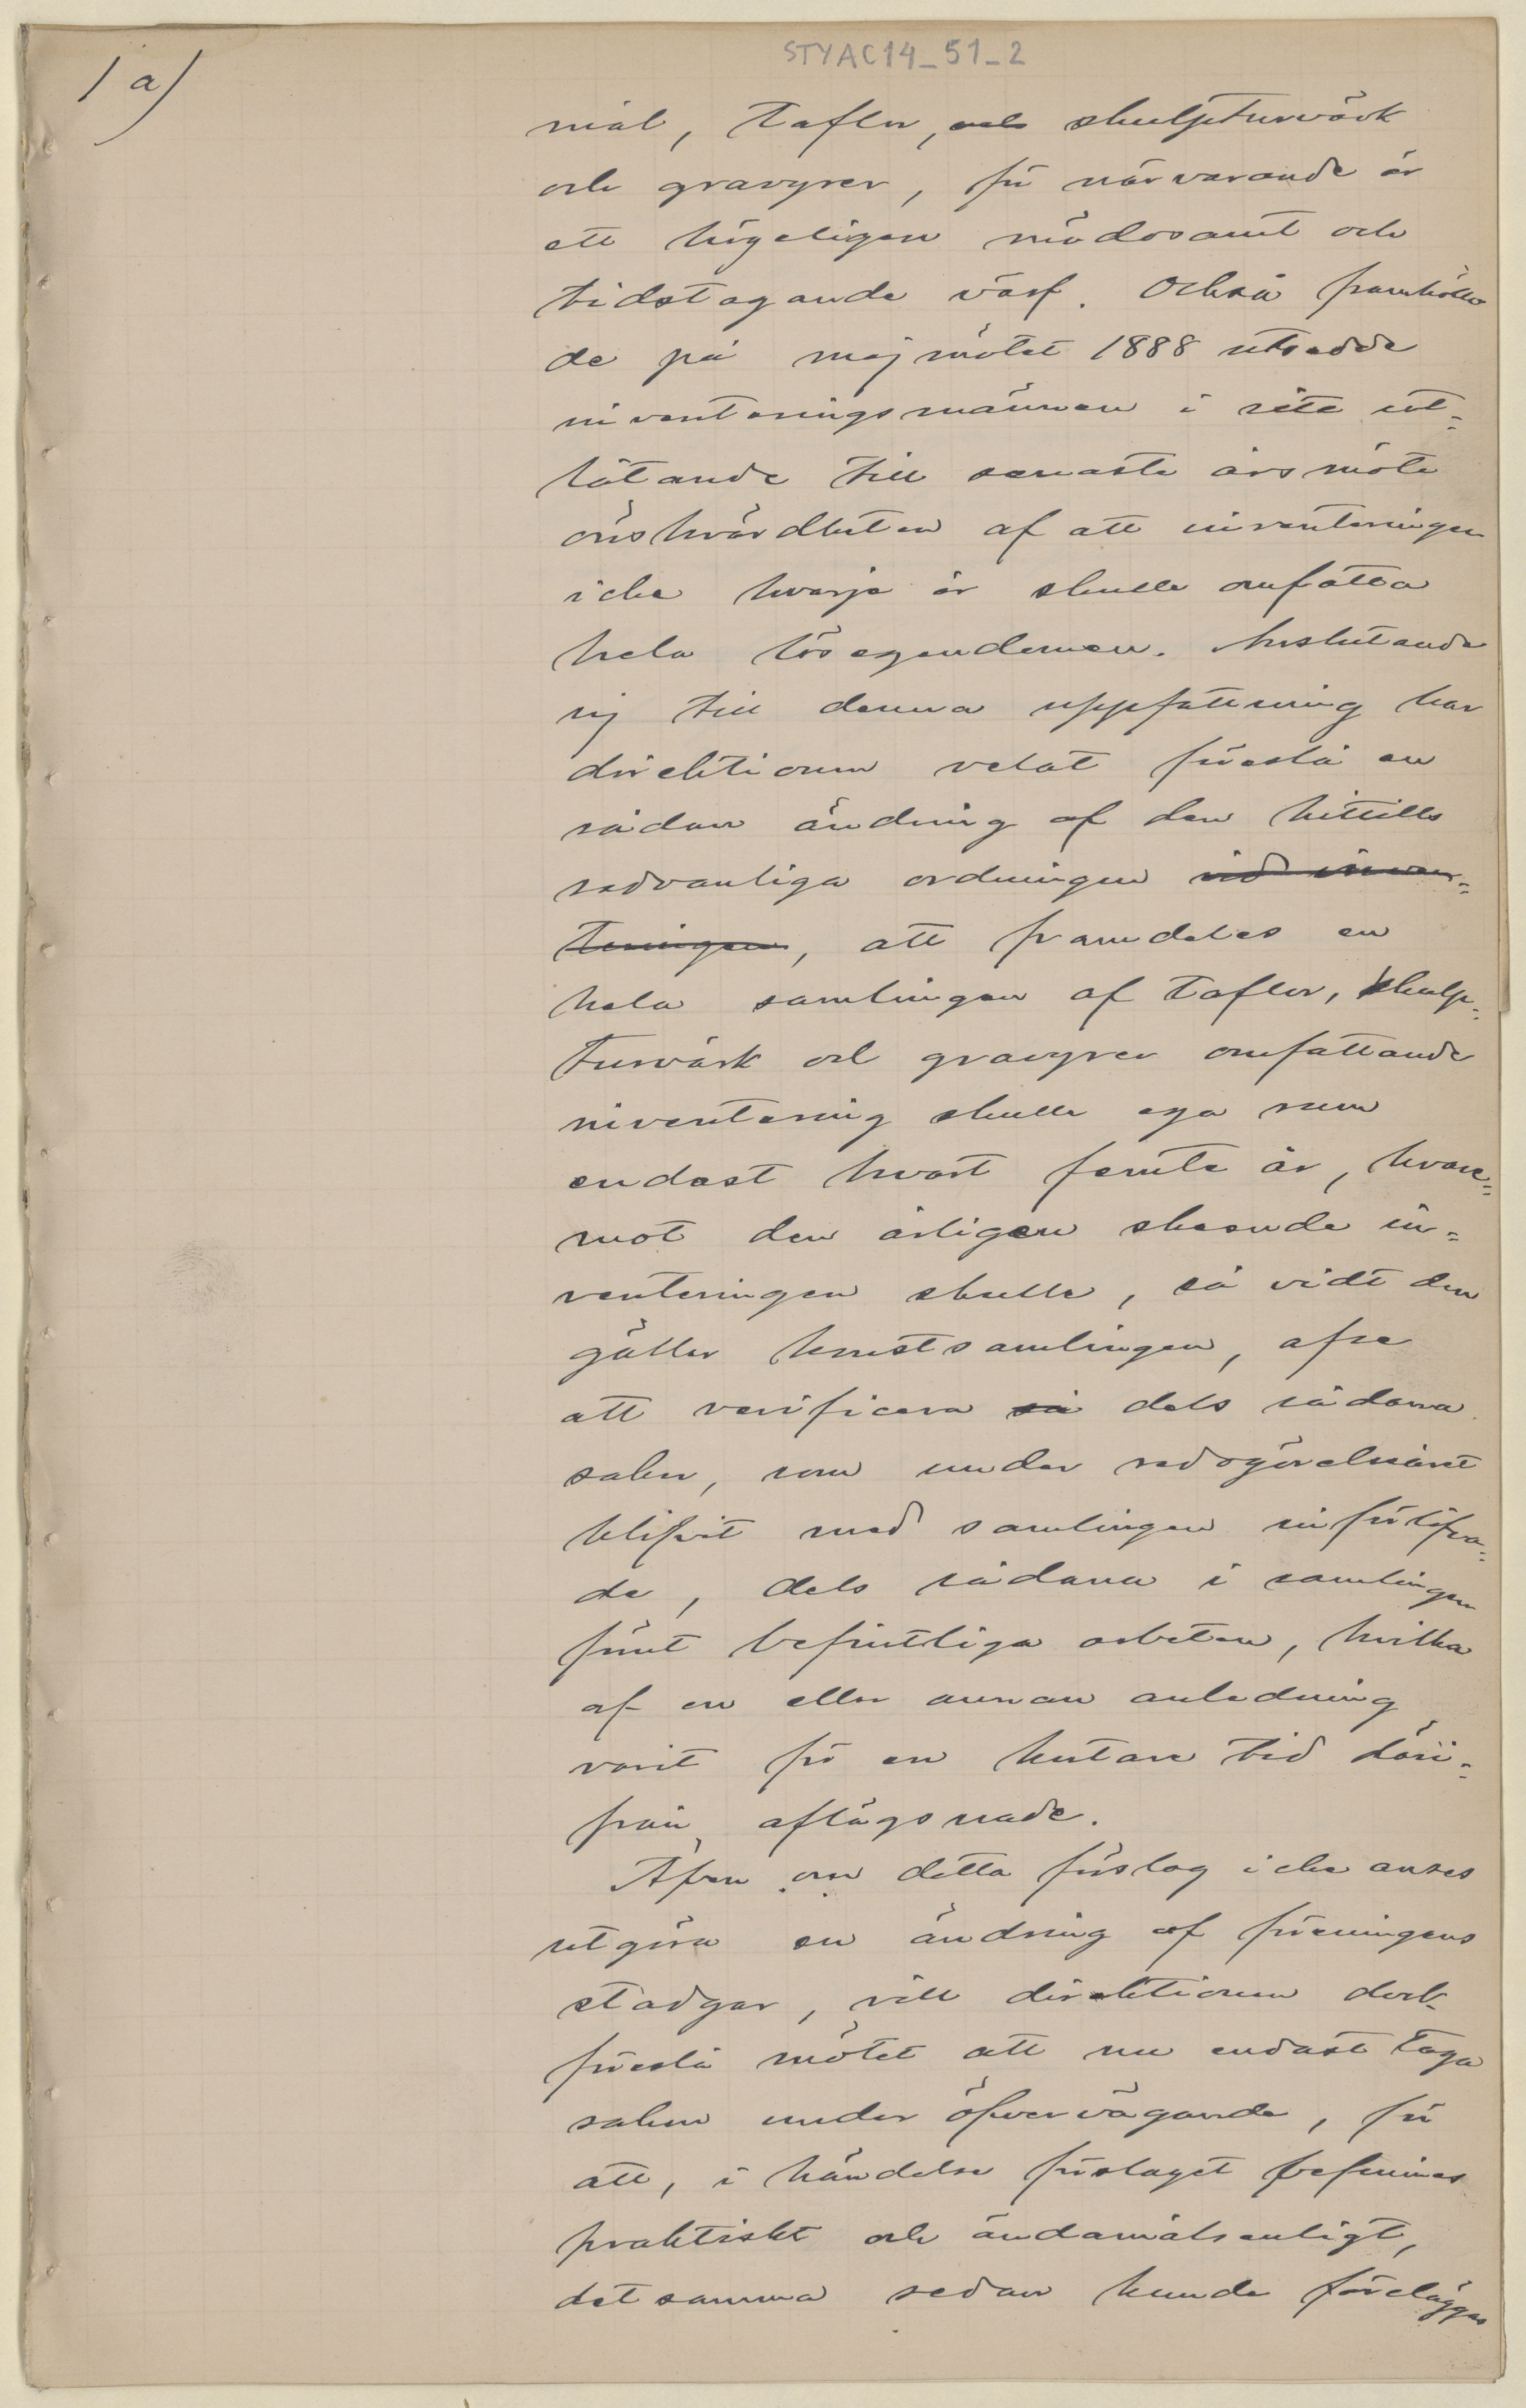 STYAC14_51_2
1 a)
mål, taflor, och skulpturvärk
och gravyrer, för närvarande är
ett högeligen mödosamt och
tidstagande värf. Också framhöllo
de på majmötet 1888 utsedde
inventeringsmännen i sitt ut-
låtande till senaste årsmöte
önskvärdheten af att inventeringen
icke hvarje år skulle omfatta
hela lösegendomen. Anslutande
sig till denna uppfattning har
direktionen velat föreslå en
sådan ändring af den hittills
sedvanliga ordningen vid inven-
teringen, att framdeles en
hela samlingen af taflor, skulp-
turvärk och gravyrer omfattande
inventering skulle ega rum
endast hvart femte år, hvare-
mot den årligen skeende in-
venteringen skulle, så vidt den
gäller konstsamlingen, afse
att verificera så dels sådana
saker, som under redogörelseåret
blifvit med samlingen införlifva-
de, dels sådana i samlingen
förut befintliga arbeten, hvilka
af en eller annan anledning
varit för en kortare tid däri-
från aflägsnade.
Äfven om detta förslag icke anses
utgöra en ändring af föreningens
stadgar, vill direktionen dock
föreslå mötet att nu endast taga
saken under öfvervägande, för
att, i händelse förslaget befinnes
praktiskt och ändamålsenligt,
detsamma sedan kunde föreläggas